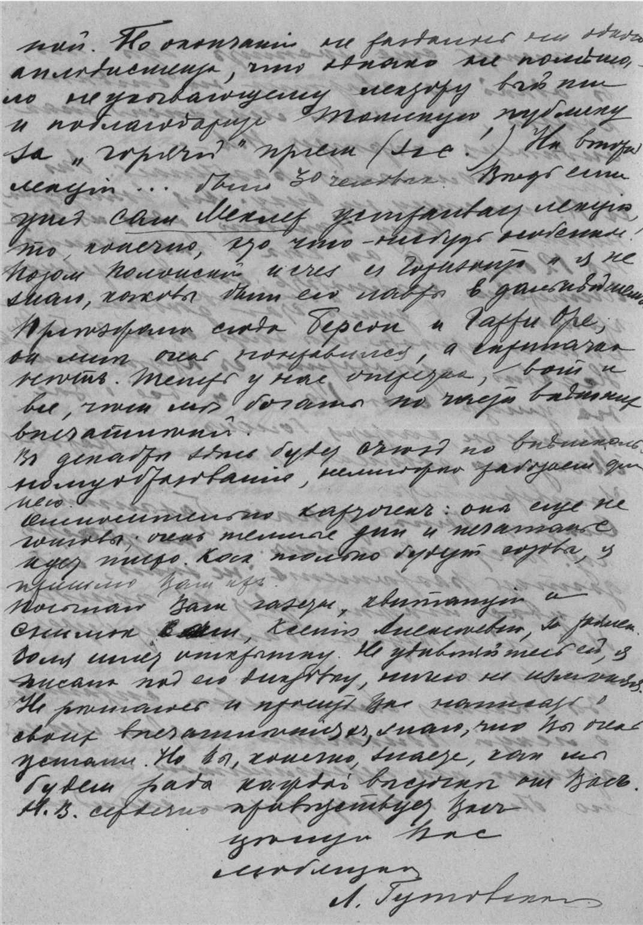 ной. По окончании не раздалось ни одного
аплодисмента, что однако не помеша-
ло неунывающему лектору выйти
и поблагодарить Томскую публику
за „горячий" прием (sic!) На второй
лекции ... было 30 человек. Ведь если
уж сам Меклер устраивал лекцию
то, конечно, что-нибудь особенное!
Потом Полонский исчез с горизонта и я не
знаю, каковы были его лавры в дальнейшем.
Приезжали сюда Берсон и Гарри Орс;
он мне очень понравился, а скрипачка
Теперь у нас оперетка, вот и
все, чем мы богаты по части видимых
впечатлений.
В декабре здесь будет съезд по внешколь-
ному образованию, немного работаем для
него.
Относительно карточек: они еще не
готовы; очень темные дни и печатанье
идет тихо. Как только будут готовы, я
пришлю Вам их.
Посылаю Вам газеты, квитанцию и
снимок Ксения Алексеевна,
шлет открытку. Не удивляйтесь ей, я
писала под его диктовку, ничего не изменяя.
Не решаюсь и просить Вас написать о
своих впечатлениях, знаю, что Вы очень
устали. Но Вы, конечно, знаете, как мы
будем рады каждой весточке от Вас.
М. В. сердечно приветствует Вас
целую Вас
любящая
Л. Гутовская